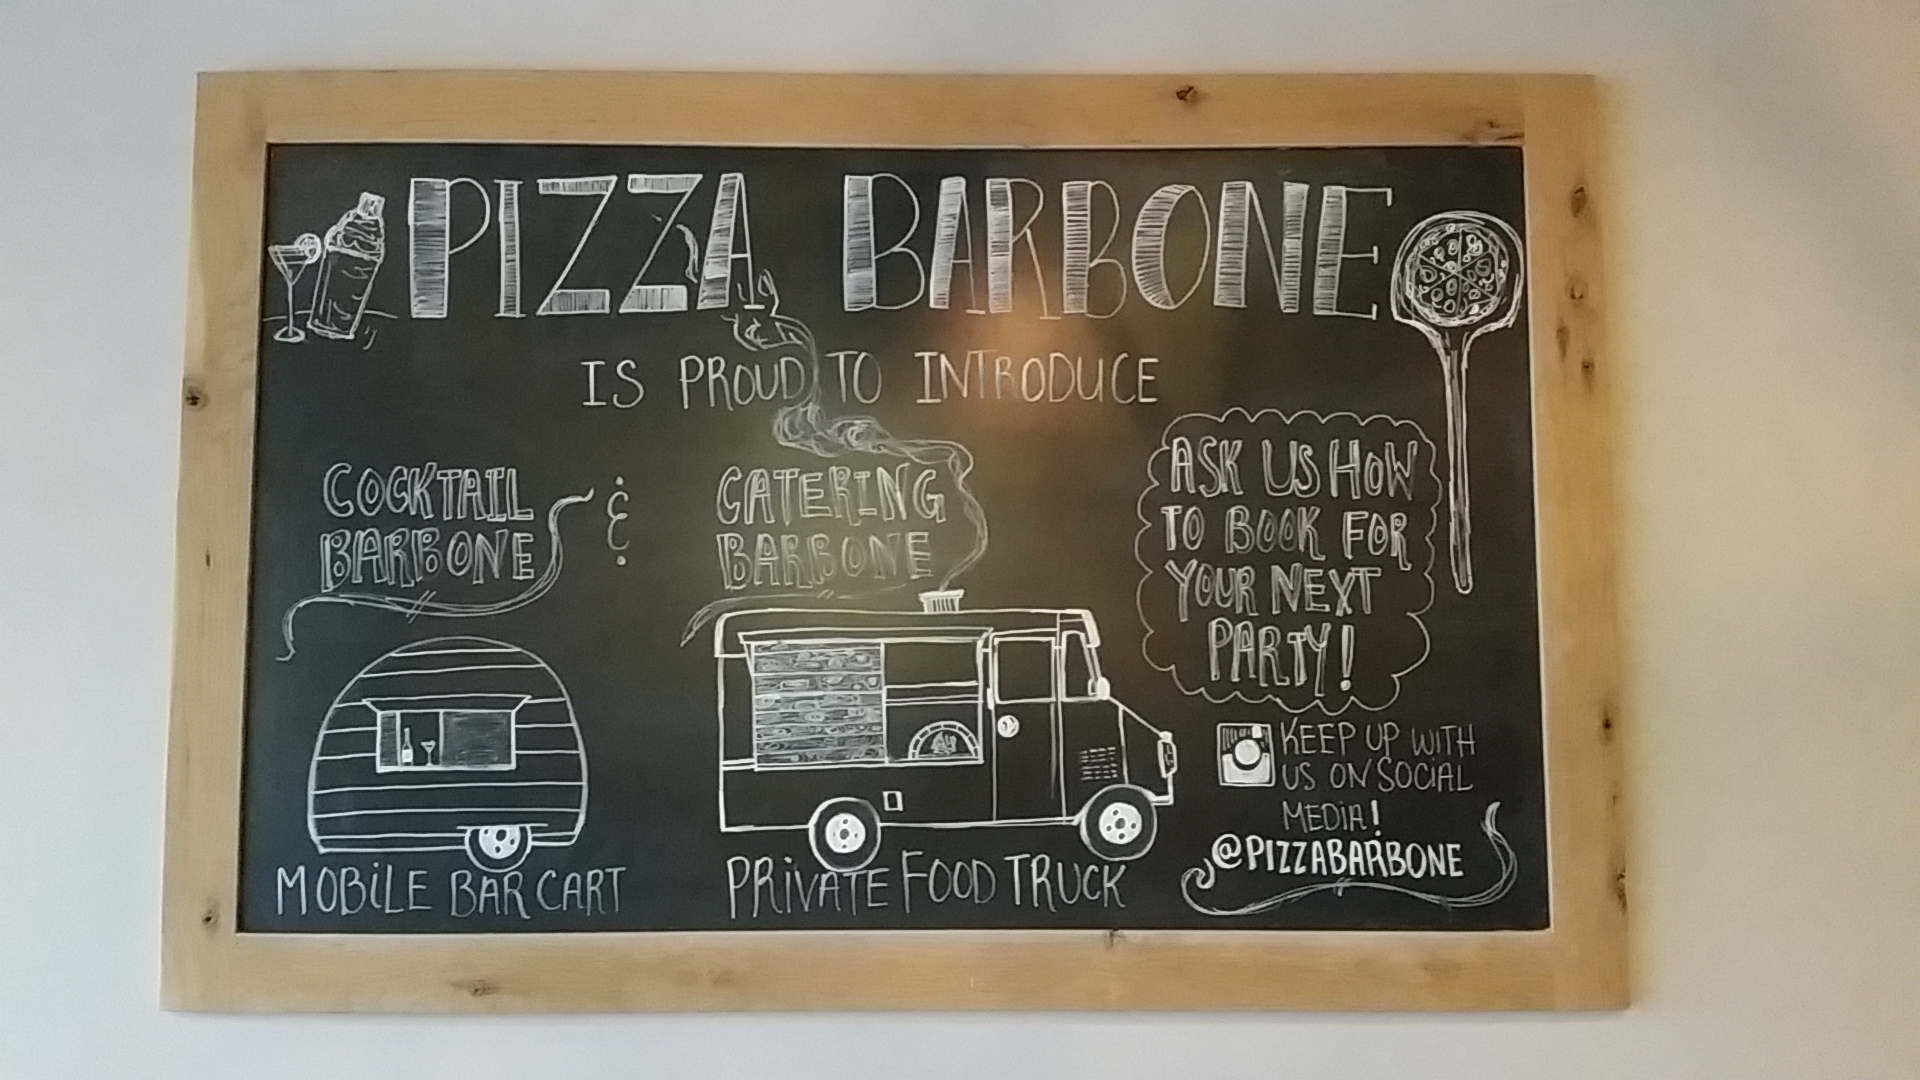 PIZZA BARBONE
IS PROUD TO INTRODUCE
COCKTAIL
BARBONE
&
CATERING
BARBONE
MOBILE BAR CART
PRIVATE FOOD TRUCK
ASK US HOW
TO BOOK FOR
YOUR NEXT
PARTY!
KEEP UP WITH
US ON SOCIAL
MEDIA!
@PIZZABARBONE